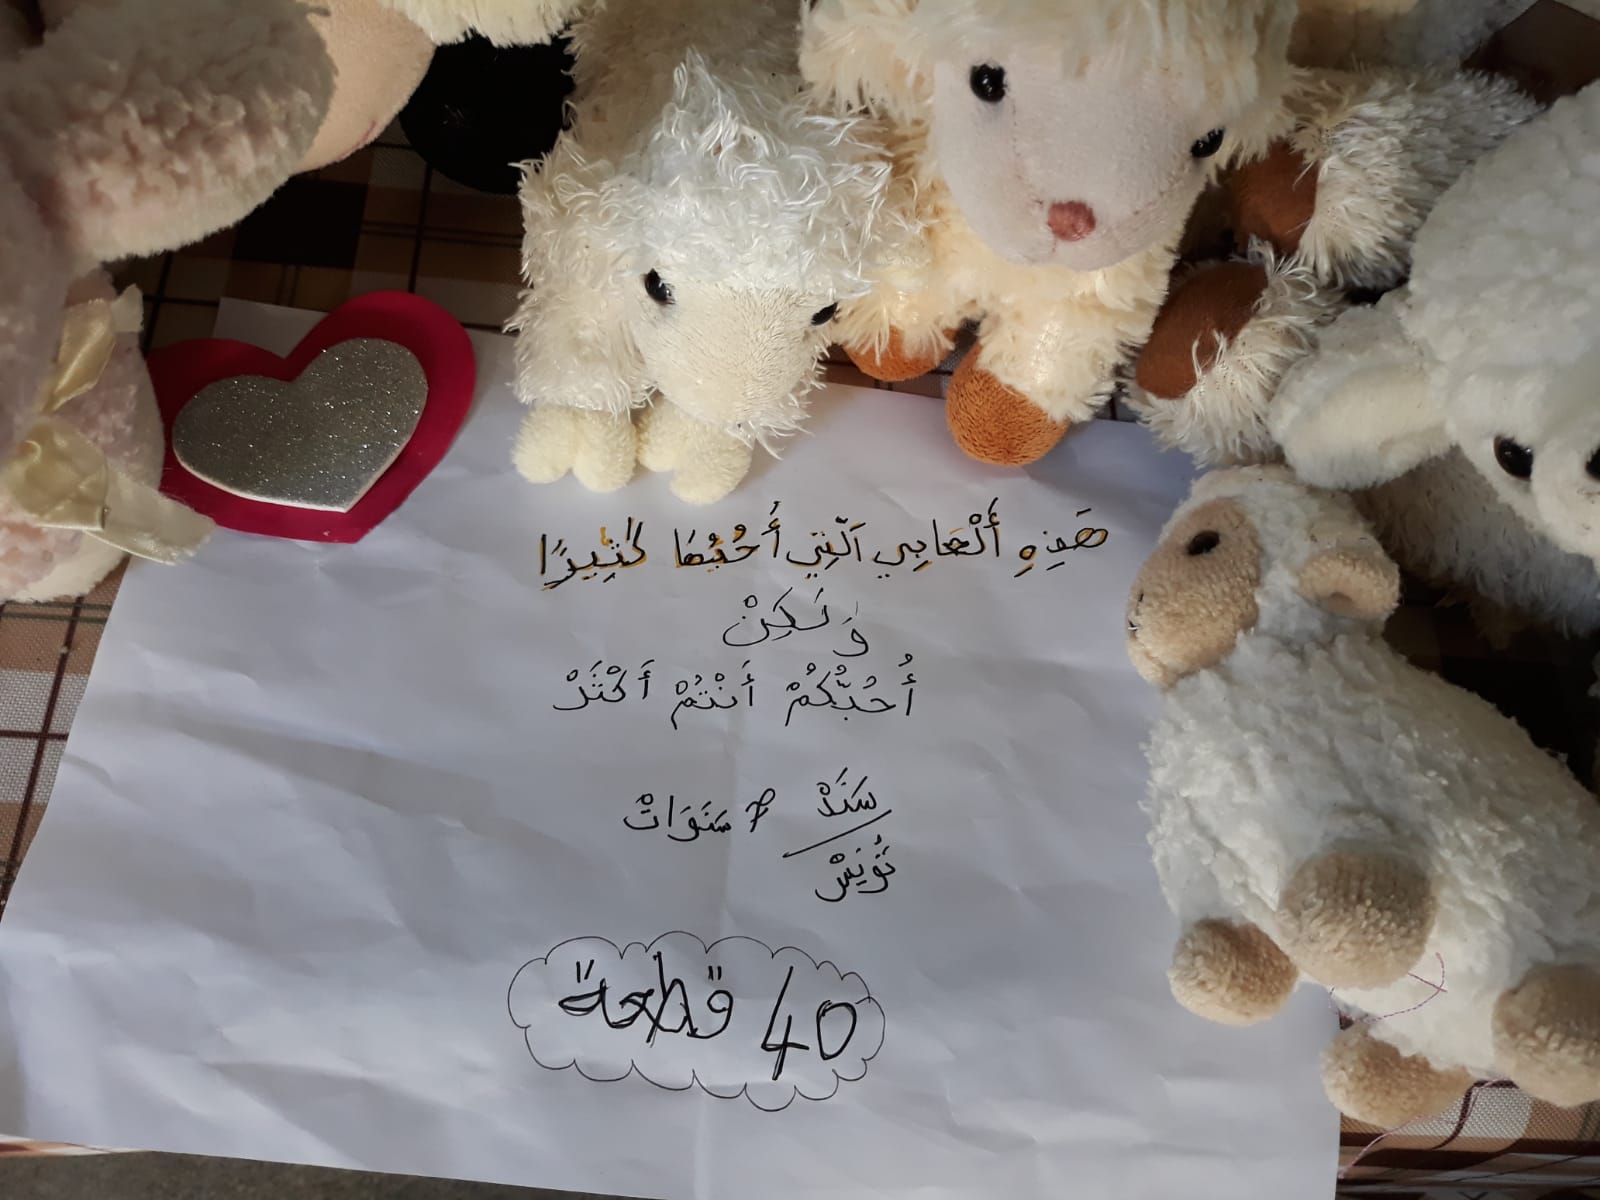 هَذِهِ أَلْعَابِي اَلَّتِي أُحُبُّهَا كَثِيرًا
وَلَكِنْ
أُحُبُّكُمْ أَنْتُمْ أَكْثَرْ
سَنَدْ 7 سَنَوَاتْ
تُونِسْ
40 قطعة